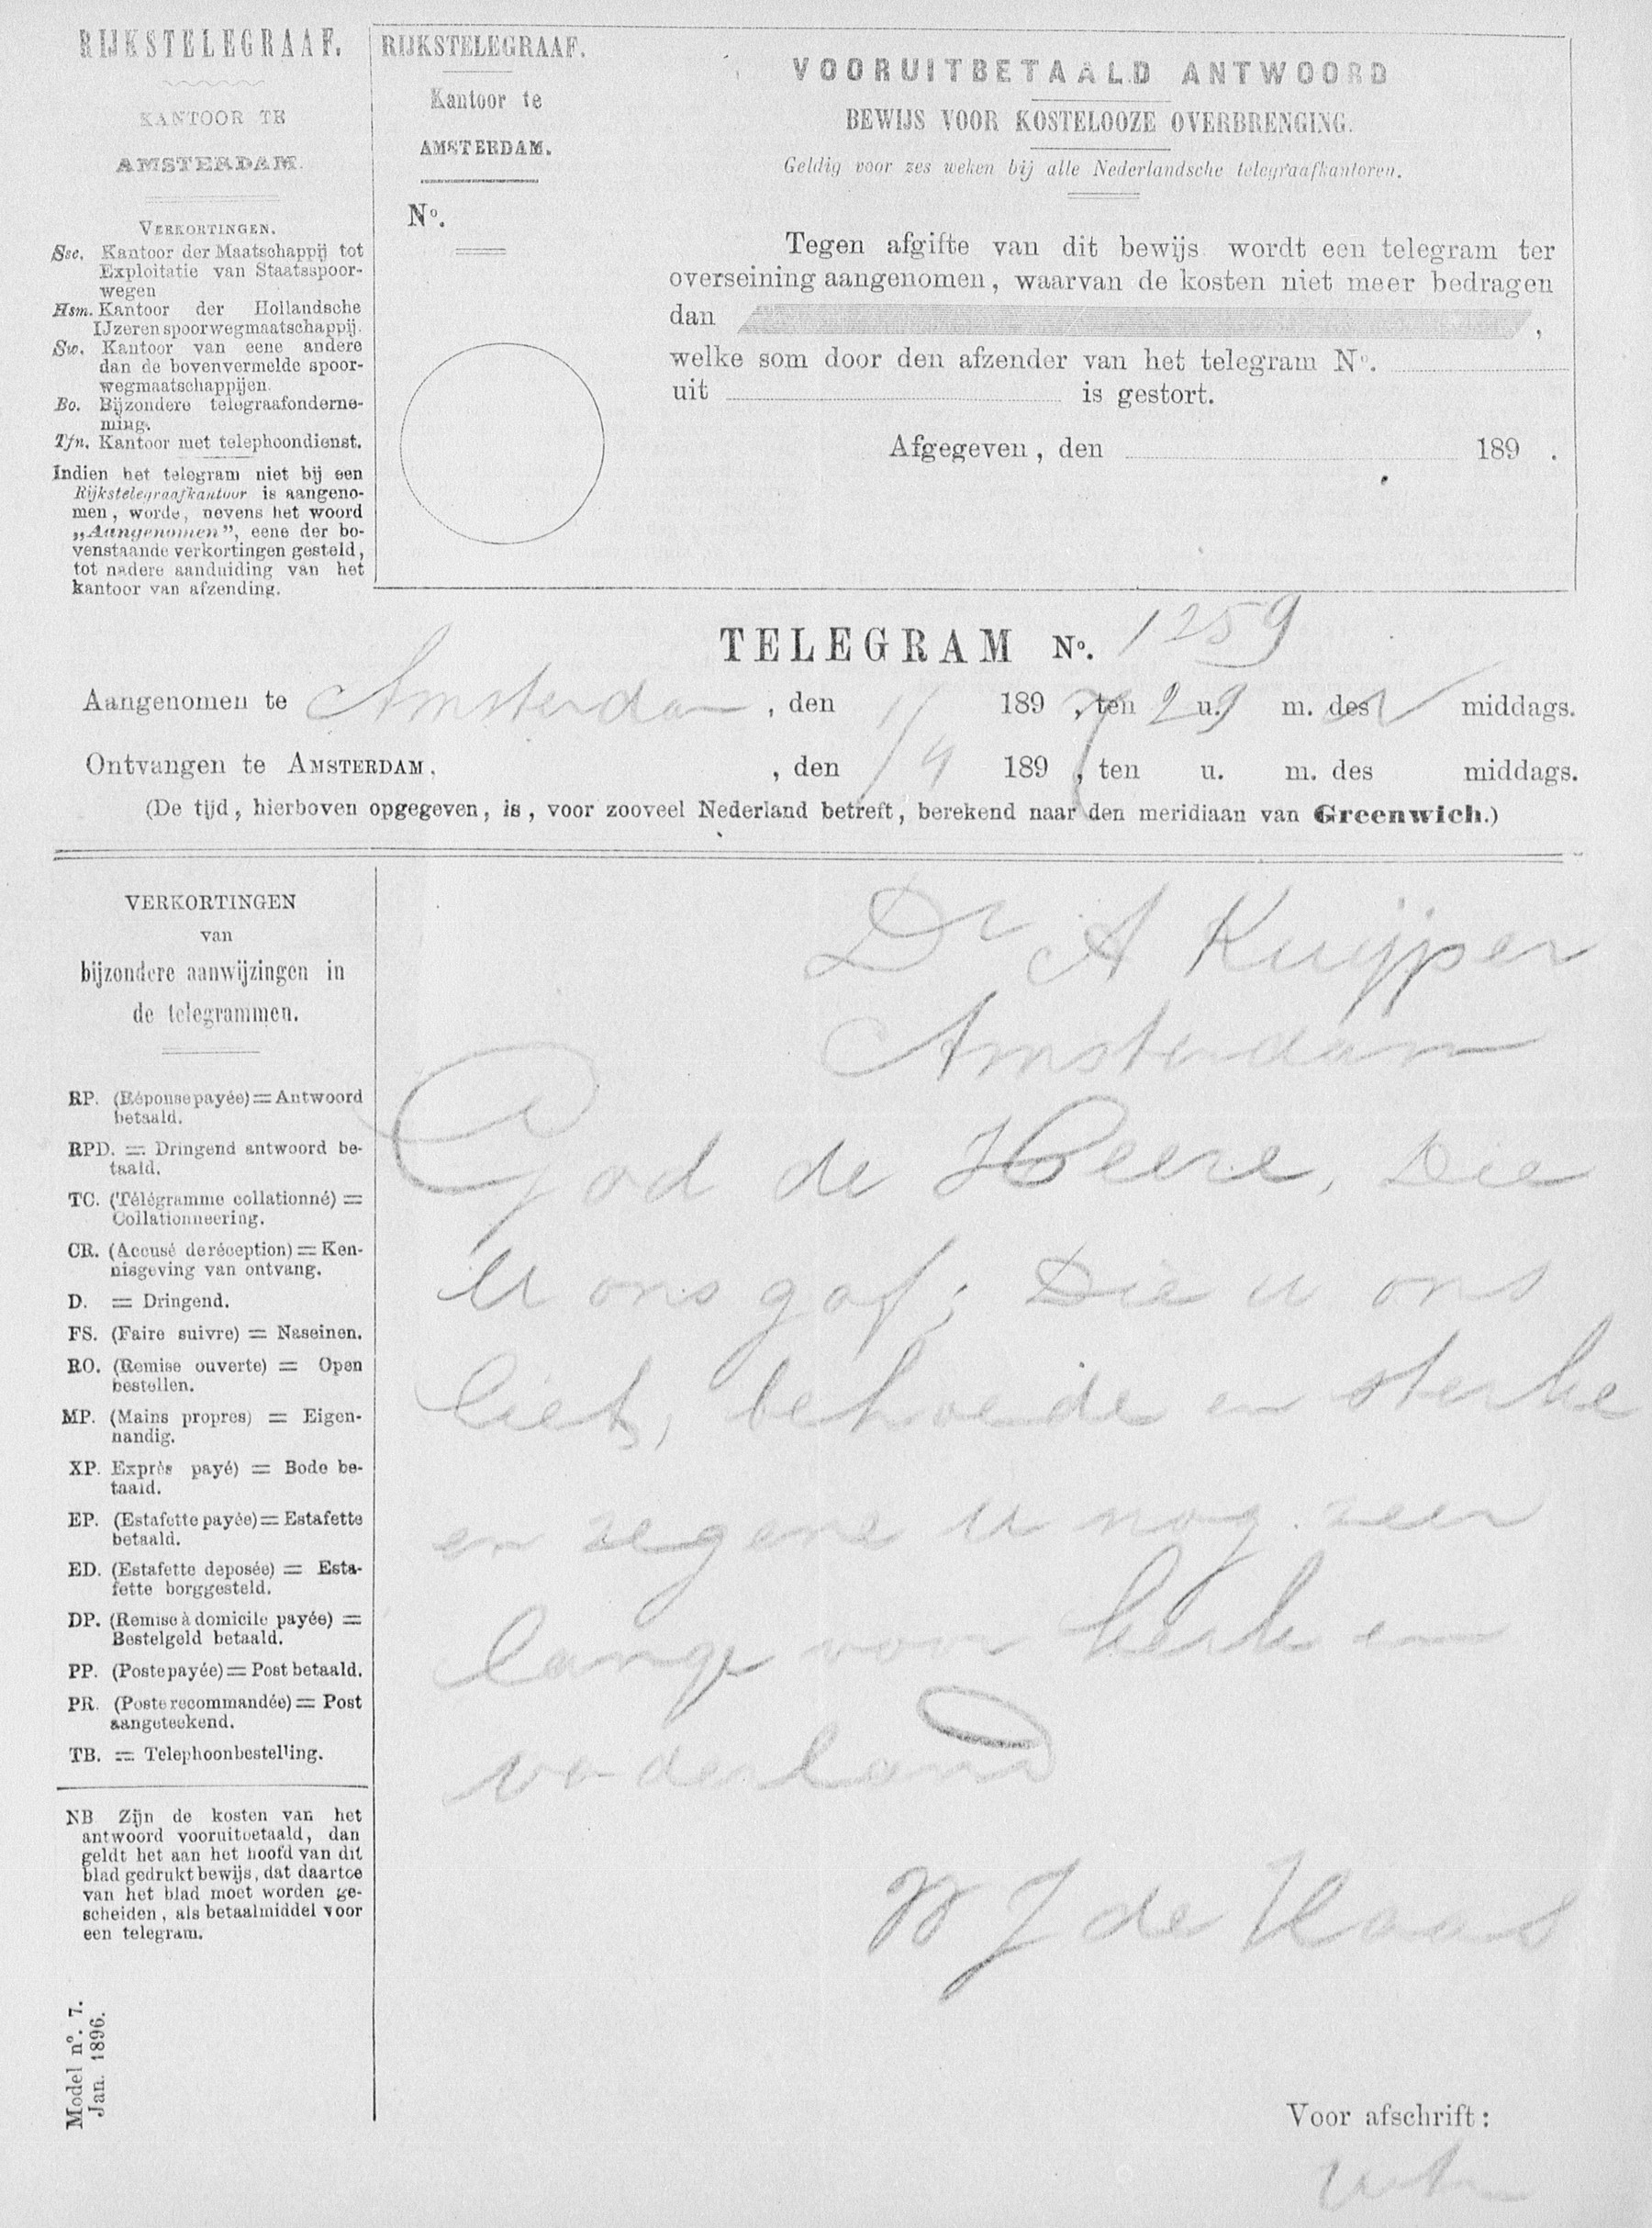 RIJKSTELEGRAAF.
KANTOOR TE
AMSTERDAM.
VERKORTINGEN.
Ssc. Kantoor der Maatschappij tot
Exploitatie van Staatsspoor-
wegen
Hsm. Kantoor der Hollandsche
IJzerenspoorwegmaatschappij.
Sw. Kantoor van eene andere
dan de bovenvermelde spoor-
wegmaatschappijen.
Bo. Bijzondere telegraafonderne-
ming.
Tfn. Kantoor met telephoondienst.
Indien het telegram niet bij een
Rijkstelegraafkantoor is aangeno-
men, worde, nevens het woord
„Aangenomen”, eene der bo-
venstaande verkortingen gesteld,
tot nadere aanduiding van het
kantoor van afzending.
RIJKSTELEGRAAF.
Kantoor te
AMSTERDAM.
No.
VOORUITBETAALD ANTWOORD
BEWIJS VOOR KOSTELOOZE OVERBRENGING.
Geldig voor zes weken bij alle Nederlandsche telegraafkantoren.
Tegen afgifte van dit bewijs wordt een telegram ter
overseining aangenomen, waarvan de kosten niet meer bedragen
dan ,
welke som door den afzender van het telegram No.
uit is gestort.
Afgegeven, den 189 .
TELEGRAM No. 1259
Aangenomen te Amsterdam, den 1/ 189 , ten 2 u. 9 m. des middags.
Ontvangen te AMSTERDAM, den 1/4 1897, ten u. m. des middags.
(De tijd, hierboven opgegeven, is, voor zooveel Nederland betreft, berekend naar den meridiaan van Greenwich.)
VERKORTINGEN
van
bijzondere aanwijzingen in
de telegrammen.
RP. (Réponse payée) = Antwoord
betaald.
RPD. = Dringend antwoord be-
taald.
TC. (Télégramme collationné) =
Collationneering.
CR. (Accusé de réception) = Ken-
nisgeving van ontvang.
D. = Dringend.
FS. (Faire suivre) = Naseinen.
RO. (Remise ouverte) = Open
bestellen.
MP. (Mains propres) = Eigen-
handig.
XP. Exprès payé) = Bode be-
taald.
EP. (Estafette payée) = Estafette
betaald.
ED. (Estafette deposée) = Esta-
fette borggesteld.
DP. (Remise à domicile payée) =
Bestelgeld betaald.
PP. (Poste payée) = Post betaald.
PR. (Poste recommandée) = Post
aangeteekend.
TB. = Telephoonbestelling.
NB Zijn de kosten van het
antwoord vooruitbetaald, dan
geldt het aan het hoofd van dit
blad gedrukt bewijs, dat daartoe
van het blad moet worden ge-
scheiden, als betaalmiddel voor
een telegram.
Model no. 7.
Jan. 1896.
Dr A Kuijper
Amsterdam
God de Heere, Die
U ons gaf; Die u ons
liet, behoede en sterke
en zegene U nog zeer
lange voor kerk en
vaderland
W J de Haas
Voor afschrift: